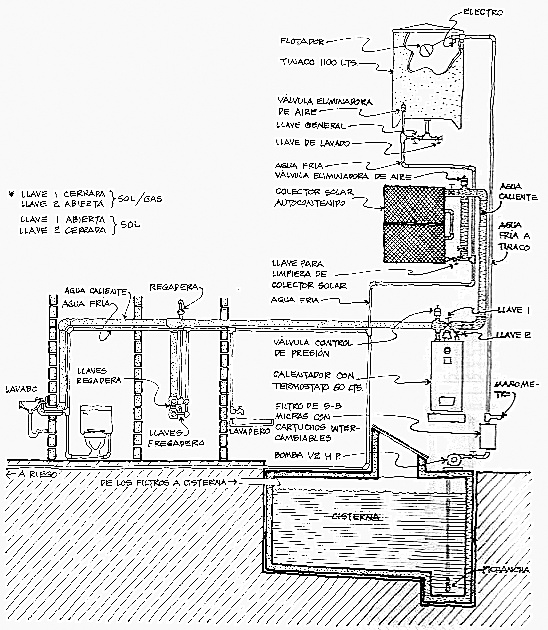 ELECTRO
FLOTADOR
TINACO 1100 LTS.
VÁLVULA ELIMINADORA
DE AIRE
LLAVE GENERAL
LLAVE DE LAVADO
AGUA FRIA
VÁLVULA ELIMINADORA DE AIRE
COLECTOR SOLAR
AUTOCONTENIDO
AGUA
CALIENTE
AGUA
FRÍA A
TINACO
* LLAVE 1 CERRADA
LLAVE 2 ABIERTA } SOL/GAS
LLAVE 1 ABIERTA
LLAVE 2 CERRADA } SOL
LLAVE PARA
LIMPIEZA DE
COLECTOR SOLAR
AGUA FRIA
AGUA CALIENTE
AGUA FRIA
REGADERA
LLAVE 1
LLAVE 2
VÁLVULA CONTROL
DE PRESIÓN
CALENTADOR CON
TERMOSTATO 60 LTS.
LLAVES
REGADERA
LAVABO
LLAVES
FREGADERO
LAVADERO
FILTRO DE 5-3
MICRAS CON
CARTUCHOS INTER-
CAMBIABLES
MANOME-
TRO
BOMBA 1/2 H P
A RIEGO
DE LOS FILTROS A CISTERNA
CISTERNA
PICHANCHA